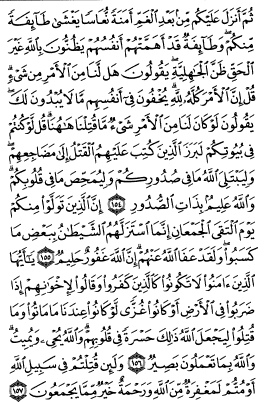 ثُمَّ أَنزَلَ عَلَيْكُم مِّنۢ بَعْدِ ٱلْغَمِّ أَمَنَةً نُّعَاسًا يَغْشَىٰ طَآئِفَةً
مِّنكُمْ ۖ وَطَآئِفَةٌ قَدْ أَهَمَّتْهُمْ أَنفُسُهُمْ يَظُنُّونَ بِٱللَّهِ غَيْرَ
ٱلْحَقِّ ظَنَّ ٱلْجَـٰهِلِيَّةِ ۖ يَقُولُونَ هَل لَّنَا مِنَ ٱلْأَمْرِ مِن شَىْءٍ ۗ
قُلْ إِنَّ ٱلْأَمْرَ كُلَّهُۥ لِلَّهِ ۗ يُخْفُونَ فِىٓ أَنفُسِهِم مَّا لَا يُبْدُونَ لَكَ ۖ
يَقُولُونَ لَوْ كَانَ لَنَا مِنَ ٱلْأَمْرِ شَىْءٌ مَّا قُتِلْنَا هَـٰهُنَا ۗ قُل لَّوْ كُنتُمْ
فِى بُيُوتِكُمْ لَبَرَزَ ٱلَّذِينَ كُتِبَ عَلَيْهِمُ ٱلْقَتْلُ إِلَىٰ مَضَاجِعِهِمْ ۖ
وَلِيَبْتَلِىَ ٱللَّهُ مَا فِى صُدُورِكُمْ وَلِيُمَحِّصَ مَا فِى قُلُوبِكُمْ ۗ
وَٱللَّهُ عَلِيمٌۢ بِذَاتِ ٱلصُّدُورِ ١٥٤ إِنَّ ٱلَّذِينَ تَوَلَّوْا۟ مِنكُمْ
يَوْمَ ٱلْتَقَى ٱلْجَمْعَانِ إِنَّمَا ٱسْتَزَلَّهُمُ ٱلشَّيْطَـٰنُ بِبَعْضِ مَا
كَسَبُوا۟ ۖ وَلَقَدْ عَفَا ٱللَّهُ عَنْهُمْ ۗ إِنَّ ٱللَّهَ غَفُورٌ حَلِيمٌ ١٥٥ يَـٰٓأَيُّهَا
ٱلَّذِينَ ءَامَنُوا۟ لَا تَكُونُوا۟ كَٱلَّذِينَ كَفَرُوا۟ وَقَالُوا۟ لِإِخْوَٰنِهِمْ إِذَا
ضَرَبُوا۟ فِى ٱلْأَرْضِ أَوْ كَانُوا۟ غُزًّى لَّوْ كَانُوا۟ عِندَنَا مَا مَاتُوا۟ وَمَا
قُتِلُوا۟ لِيَجْعَلَ ٱللَّهُ ذَٰلِكَ حَسْرَةً فِى قُلُوبِهِمْ ۗ وَٱللَّهُ يُحْىِۦ وَيُمِيتُ ۗ
وَٱللَّهُ بِمَا تَعْمَلُونَ بَصِيرٌ ١٥٦ وَلَئِن قُتِلْتُمْ فِى سَبِيلِ ٱللَّهِ
أَوْ مُتُّمْ لَمَغْفِرَةٌ مِّنَ ٱللَّهِ وَرَحْمَةٌ خَيْرٌ مِّمَّا يَجْمَعُونَ ١٥٧